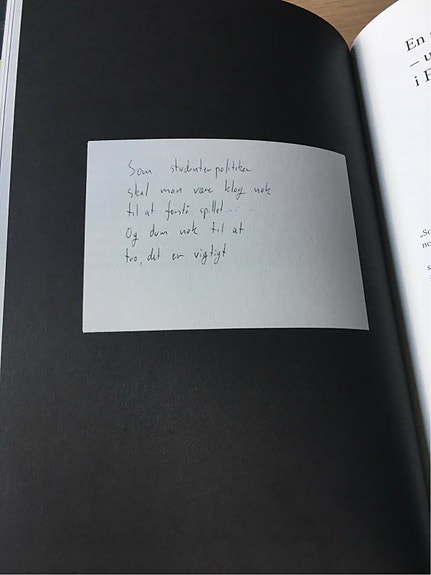 Som studenterpolitiker
skal man være klog nok
til at forstå spillet...
Og dum nok til at
tro, det er vigtigt
En
– u
i E
„So
no
s